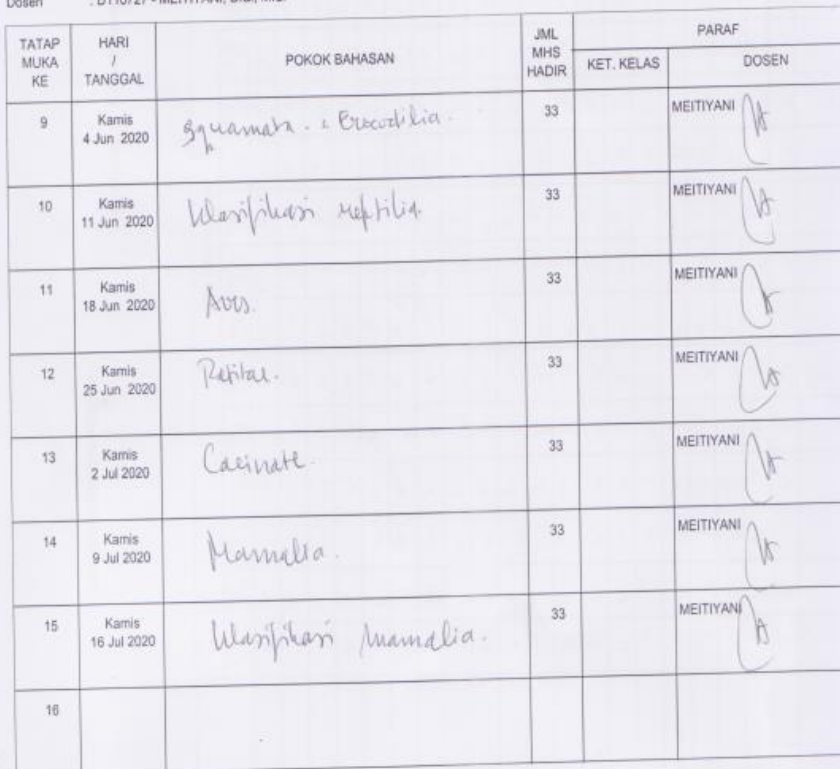 Dosen
TATAP MUKA KE
HARI / TANGGAL
POKOK BAHASAN
JML MHS HADIR
PARAF
KET. KELAS
DOSEN
9 Kamis 4 Jun 2020 Squamata. & Crocodilia. 33 MEITIYANI
10 Kamis 11 Jun 2020 Klasifikasi reptilia. 33 MEITIYANI
11 Kamis 18 Jun 2020 Aves. 33 MEITIYANI
12 Kamis 25 Jun 2020 33 MEITIYANI
13 Kamis 2 Jul 2020 33 MEITIYANI
14 Kamis 9 Jul 2020 Mamalia. 33 MEITIYANI
15 Kamis 16 Jul 2020 Klasifikasi Mamalia. 33 MEITIYANI
16